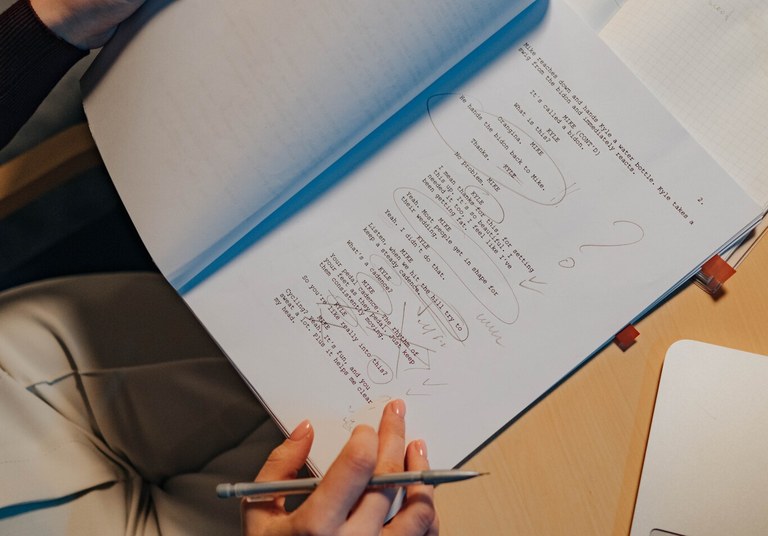 2.
Mike reaches down and hands Kyle a water bottle. Kyle takes a
swig from the bidon and immediately reacts.
MIKE (CONT'D)
It's called a bidon.
KYLE
What is this?
MIKE
Orangina.
He hands the bidon back to Mike.
KYLE
Thanks.
MIKE
No problem.
KYLE
I mean thanks for this, for setting
this up, it's so beautiful. I
needed it too, I feel like I've
been getting fat.
MIKE
Yeah. Most people get in shape for
their wedding.
KYLE
Yeah, I didn't do that.
MIKE
Listen, when we hit the hill try to
keep a steady cadence.
KYLE
What's a cadence?
MIKE
Your pedal cadence, the rhythm of
your feet as they pedal. Just keep
them consistently moving.
KYLE
So you're like really into this?
MIKE
Cycling? Yeah it's fun, and you
sweat a lot. Plus it helps me clear
my head.
?